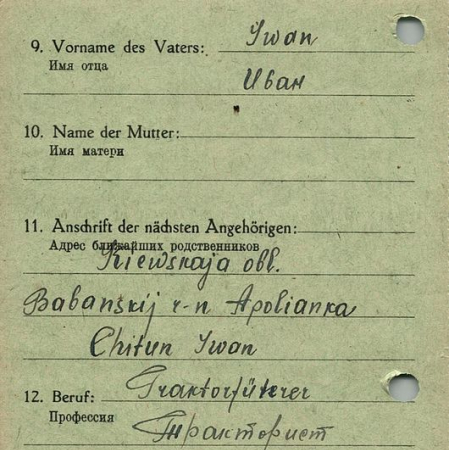 9. Vorname des Vaters: Iwan
Имя отца
Иван
10. Name der Mutter:
Имя матери
11. Anschrift der nächsten Angehörigen:
Адрес ближайших родственников
Kiewskaja obl.
Babanskij r-n Apolianka
Chitun Iwan
12. Beruf: Traktorführer
Профессия
Тракторист